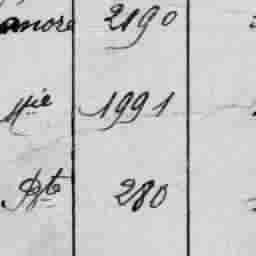 anore 2190
Mie 1991
Bte 280